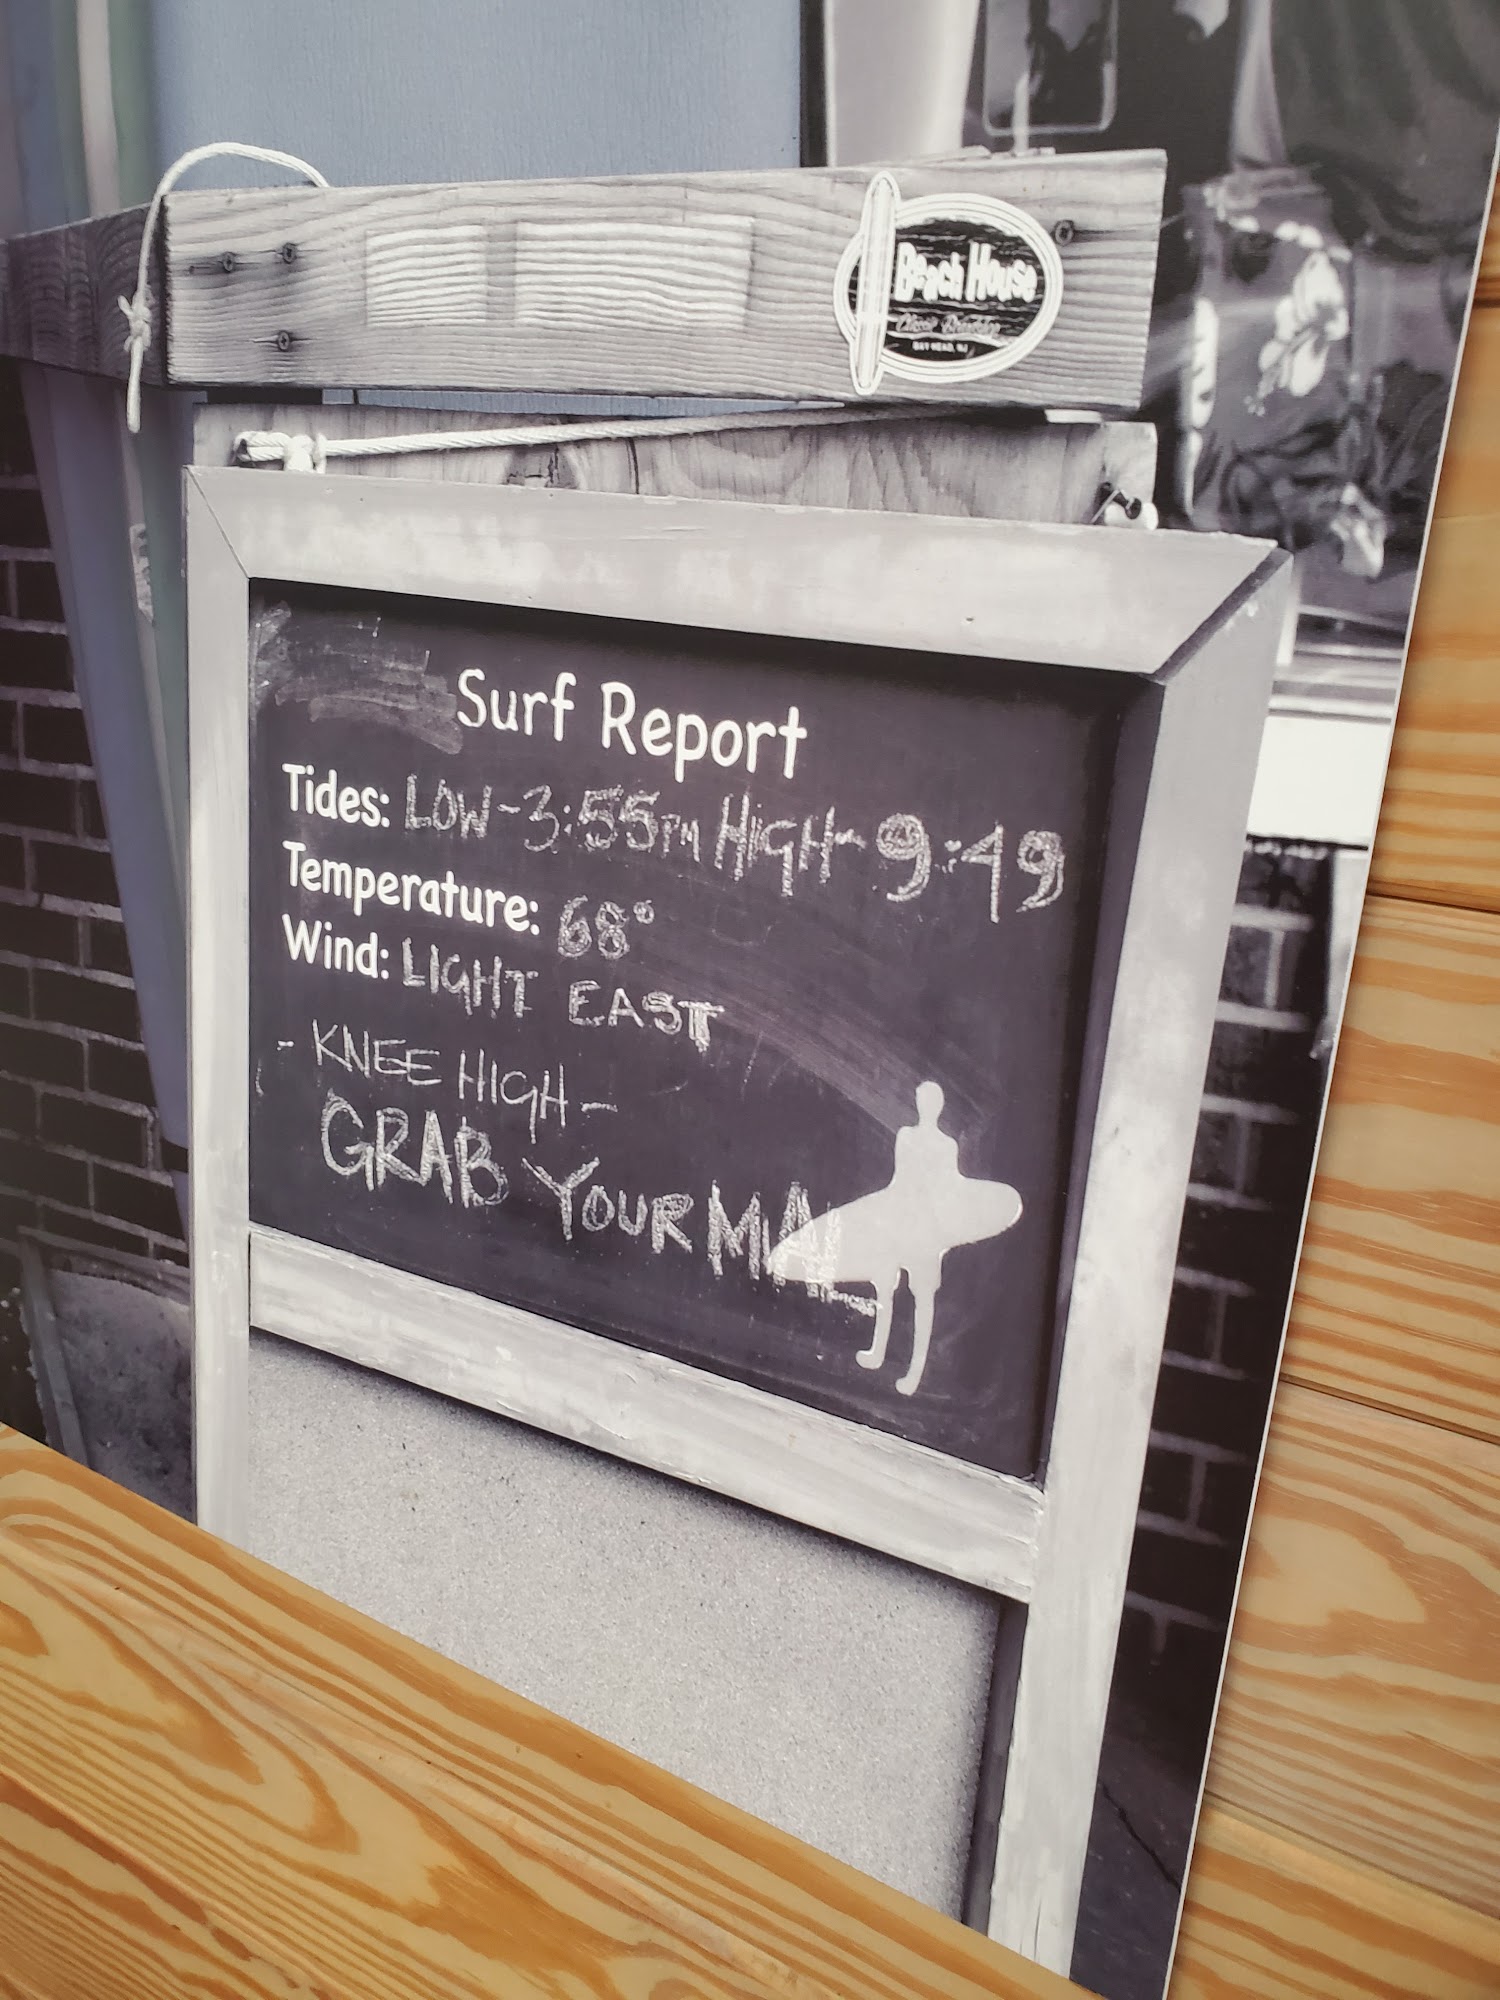 Beach House
BAY HEAD, NJ
Surf Report
Tides: LOW-3:55PM HIGH-9:49
Temperature: 68°
Wind: LIGHT EAST
- KNEE HIGH -
GRAB YOUR MAL